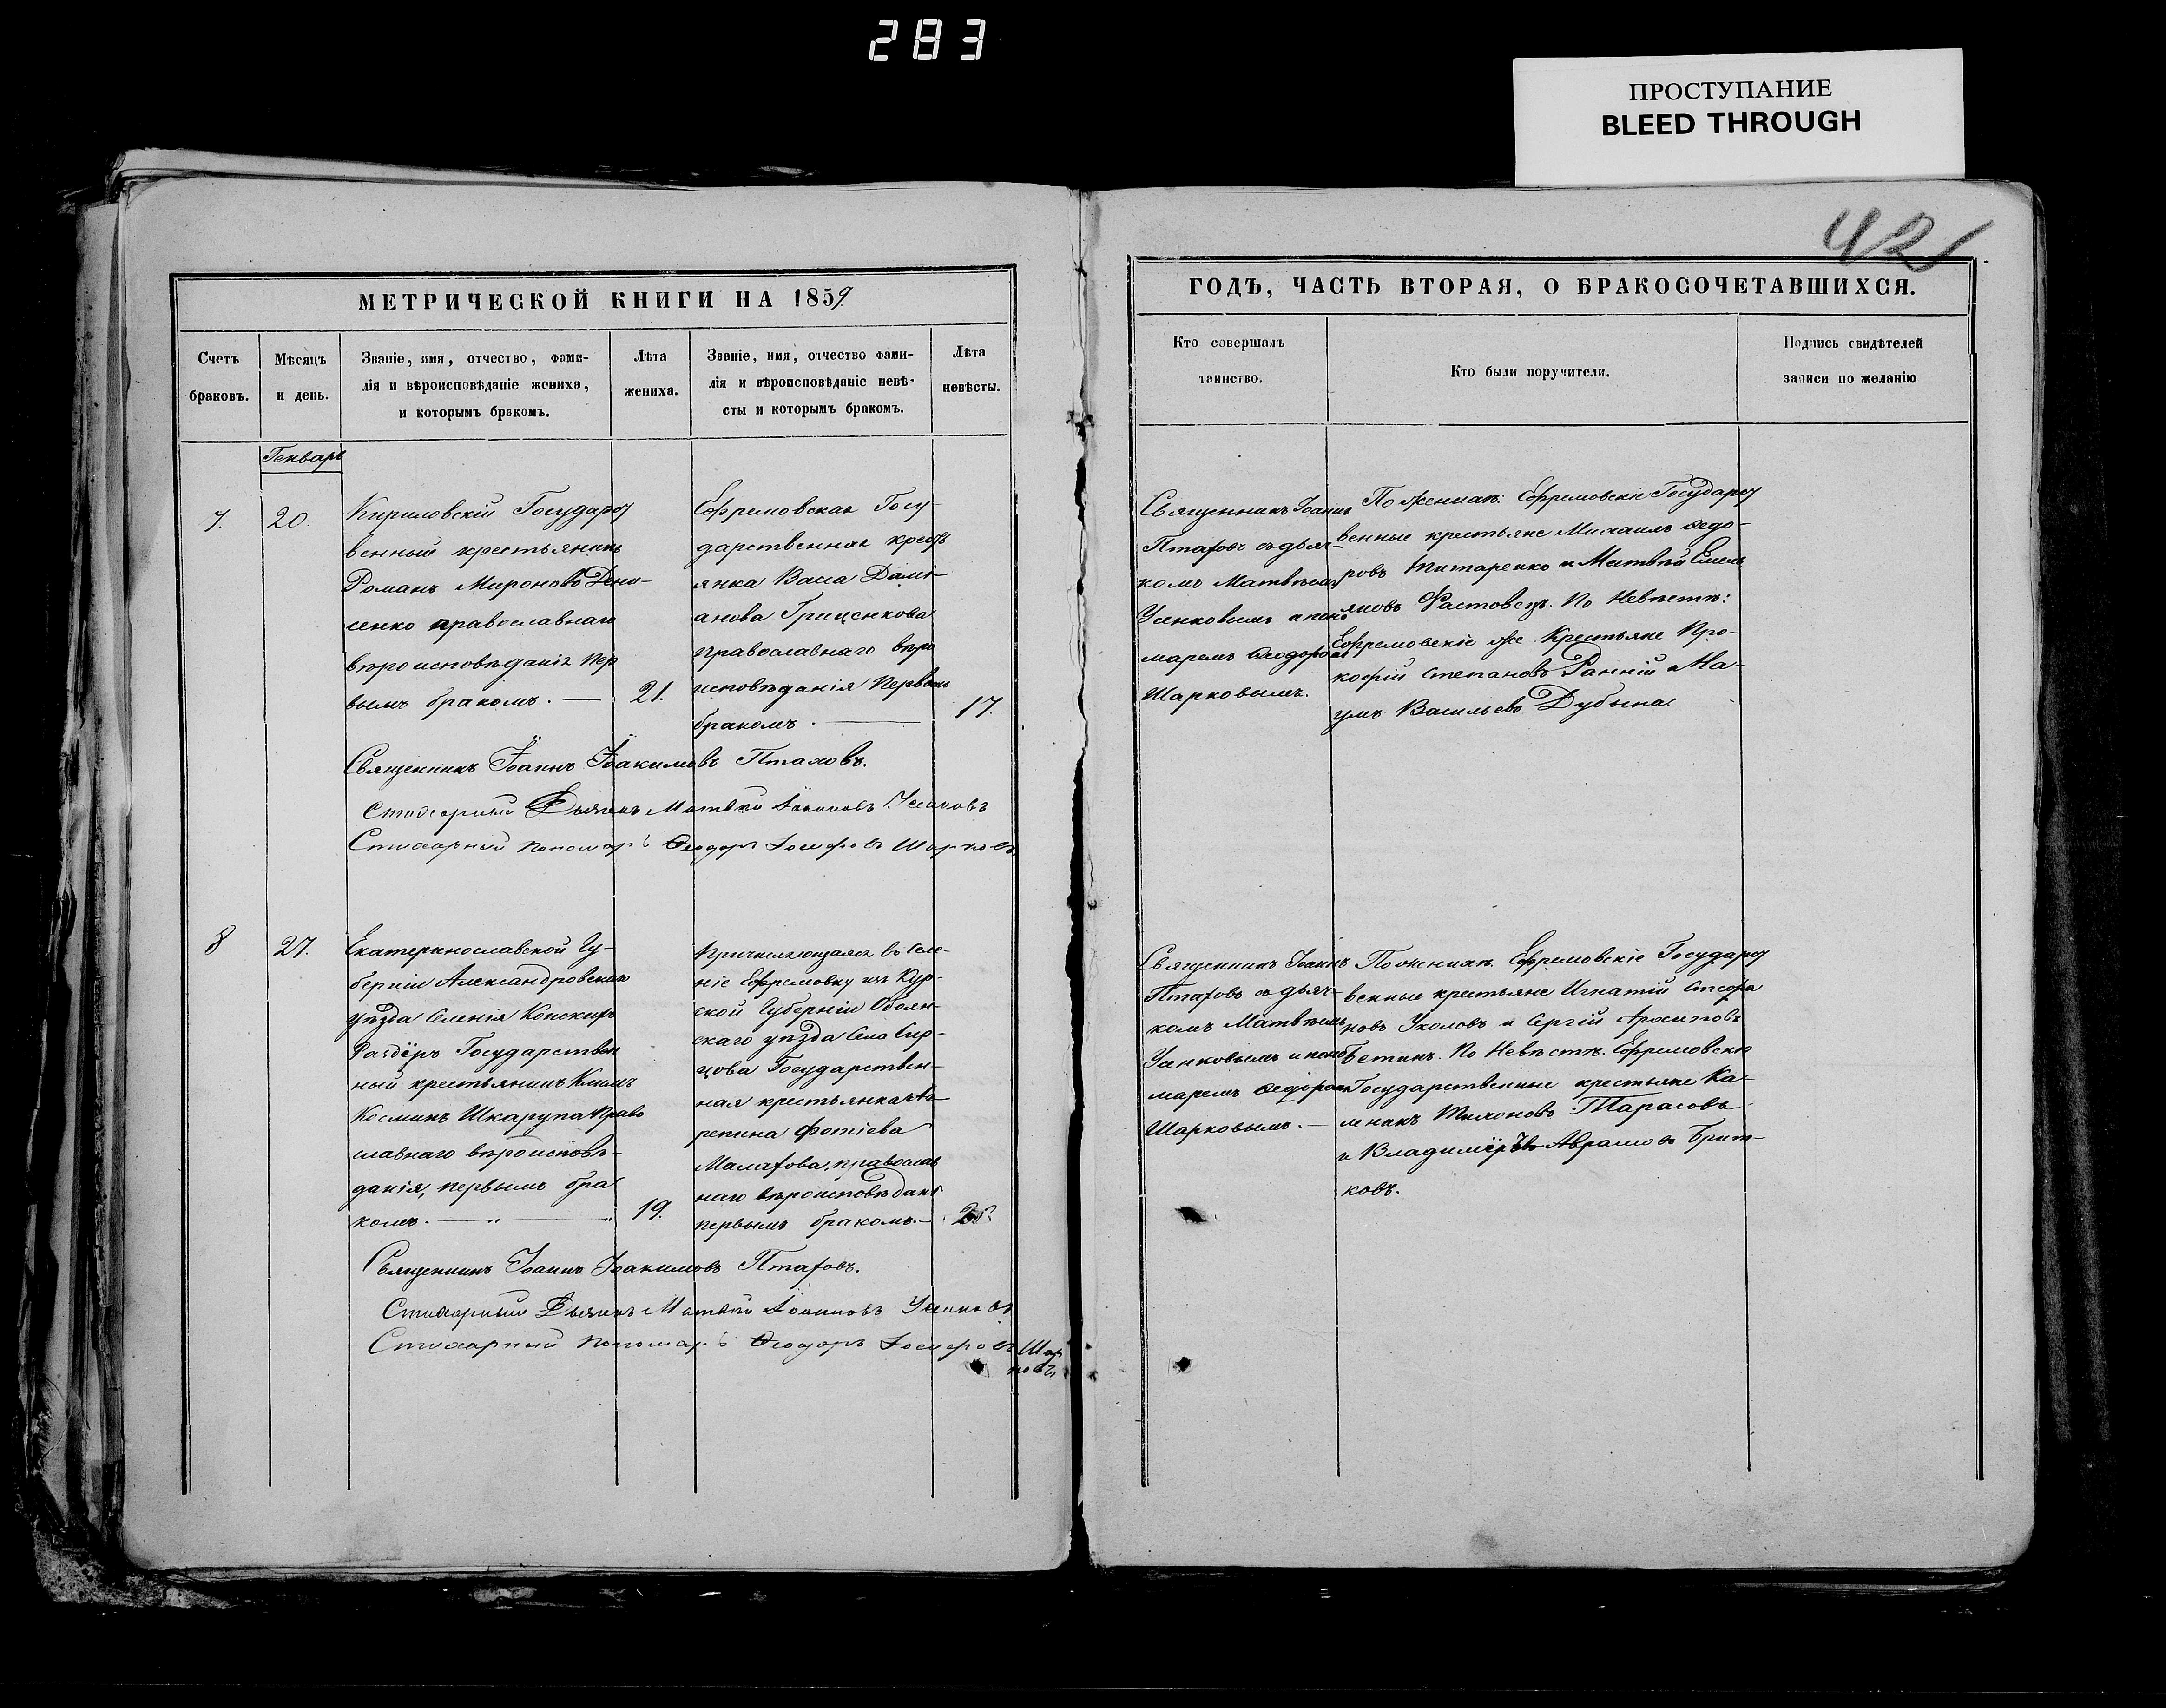 283
ПРОСТУПАНИЕ
BLEED THROUGH
42
МЕТРИЧЕСКОЙ КНИГИ НА 1859
Счетъ
браковъ.
Мѣсяцъ
и день.
Званіе, имя, отчество, фами-
лія и вѣроисповѣданіе жениха,
и которымъ бракомъ.
Лѣта
жениха.
Званіе, имя, отчество фами-
лія и вѣроисповѣданіе невѣ-
сты и которымъ бракомъ.
Лѣта
невѣсты.
Генварь
7.
20.
Кириловскій Государст
венный крестьянинъ
Романъ Мироновъ Дени-
сенко православнаго
вѣроисповѣданія пер
вымъ бракомъ. —
21.
Ефремовская Госу-
дарственная кресть
янка Васа Дамі-
анова Гриценкова
православнаго вѣро
исповѣданія первымъ
бракомъ. —
17.
Священникъ Іоаннъ Іоакимовъ Птаховъ.
Стихарный Дьячекъ Матвѣй Іоанновъ
Стихарный пономарь Ѳеодоръ Іосифовъ Шарковъ
8
27.
Екатеринославской Гу-
берніи Александровскаго
уѣзда селенія Конскихъ
Раздоръ Государствен
ный крестьянинъ Климъ
Косминъ Шкарупа право
славнаго вѣроисповѣ-
данія, первымъ бра
комъ. — „ — „
19.
Причисляющаяся въ селе-
ніе Ефремовку изъ Кур-
ской Губерніи Обоян-
скаго уѣзда села
Государствен-
ная крестьянка
Фотіева
Малахова, православ
наго вѣроисповѣданія
первымъ бракомъ. —
Священникъ Іоаннъ Іоакимовъ Птаховъ.
Стихарный Дьячекъ Матвѣй Іоанновъ
Стихарный пономарь Ѳеодоръ Іосифовъ Шар
ковъ
ГОДЪ, ЧАСТЬ ВТОРАЯ, О БРАКОСОЧЕТАВШИХСЯ.
Кто совершалъ
таинство.
Кто были поручители.
Подпись свидѣтелей
записи по желанію
Священникъ Іоаннъ
Птаховъ съ дьяч-
комъ Матвѣемъ
и поно
маремъ Ѳеодоромъ
Шарковымъ.
По женихѣ: Ефремовскіе Государст
венные крестьяне Михаилъ Ѳедо-
ровъ Титаренко и Матвѣй Емель
яновъ Растовецъ. По Невѣстѣ:
Ефремовскіе же Крестьяне Про-
кофій Степановъ Ранній и На-
умъ Васильевъ Дубына
Священникъ Іоаннъ
Птаховъ съ дьяч-
комъ Матвѣемъ
и поно
маремъ Ѳедоромъ
Шарковымъ. —
По женихѣ. Ефремовскіе Государст
венные крестьяне Игнатій Стефа
новъ Уколовъ и Сергій Архиповъ
По Невѣстѣ. Ефремовскіе
Государственные крестьяне Ка-
Тихоновъ Тарасовъ
и Владиміръ Аврамовъ Брит-
ковъ.